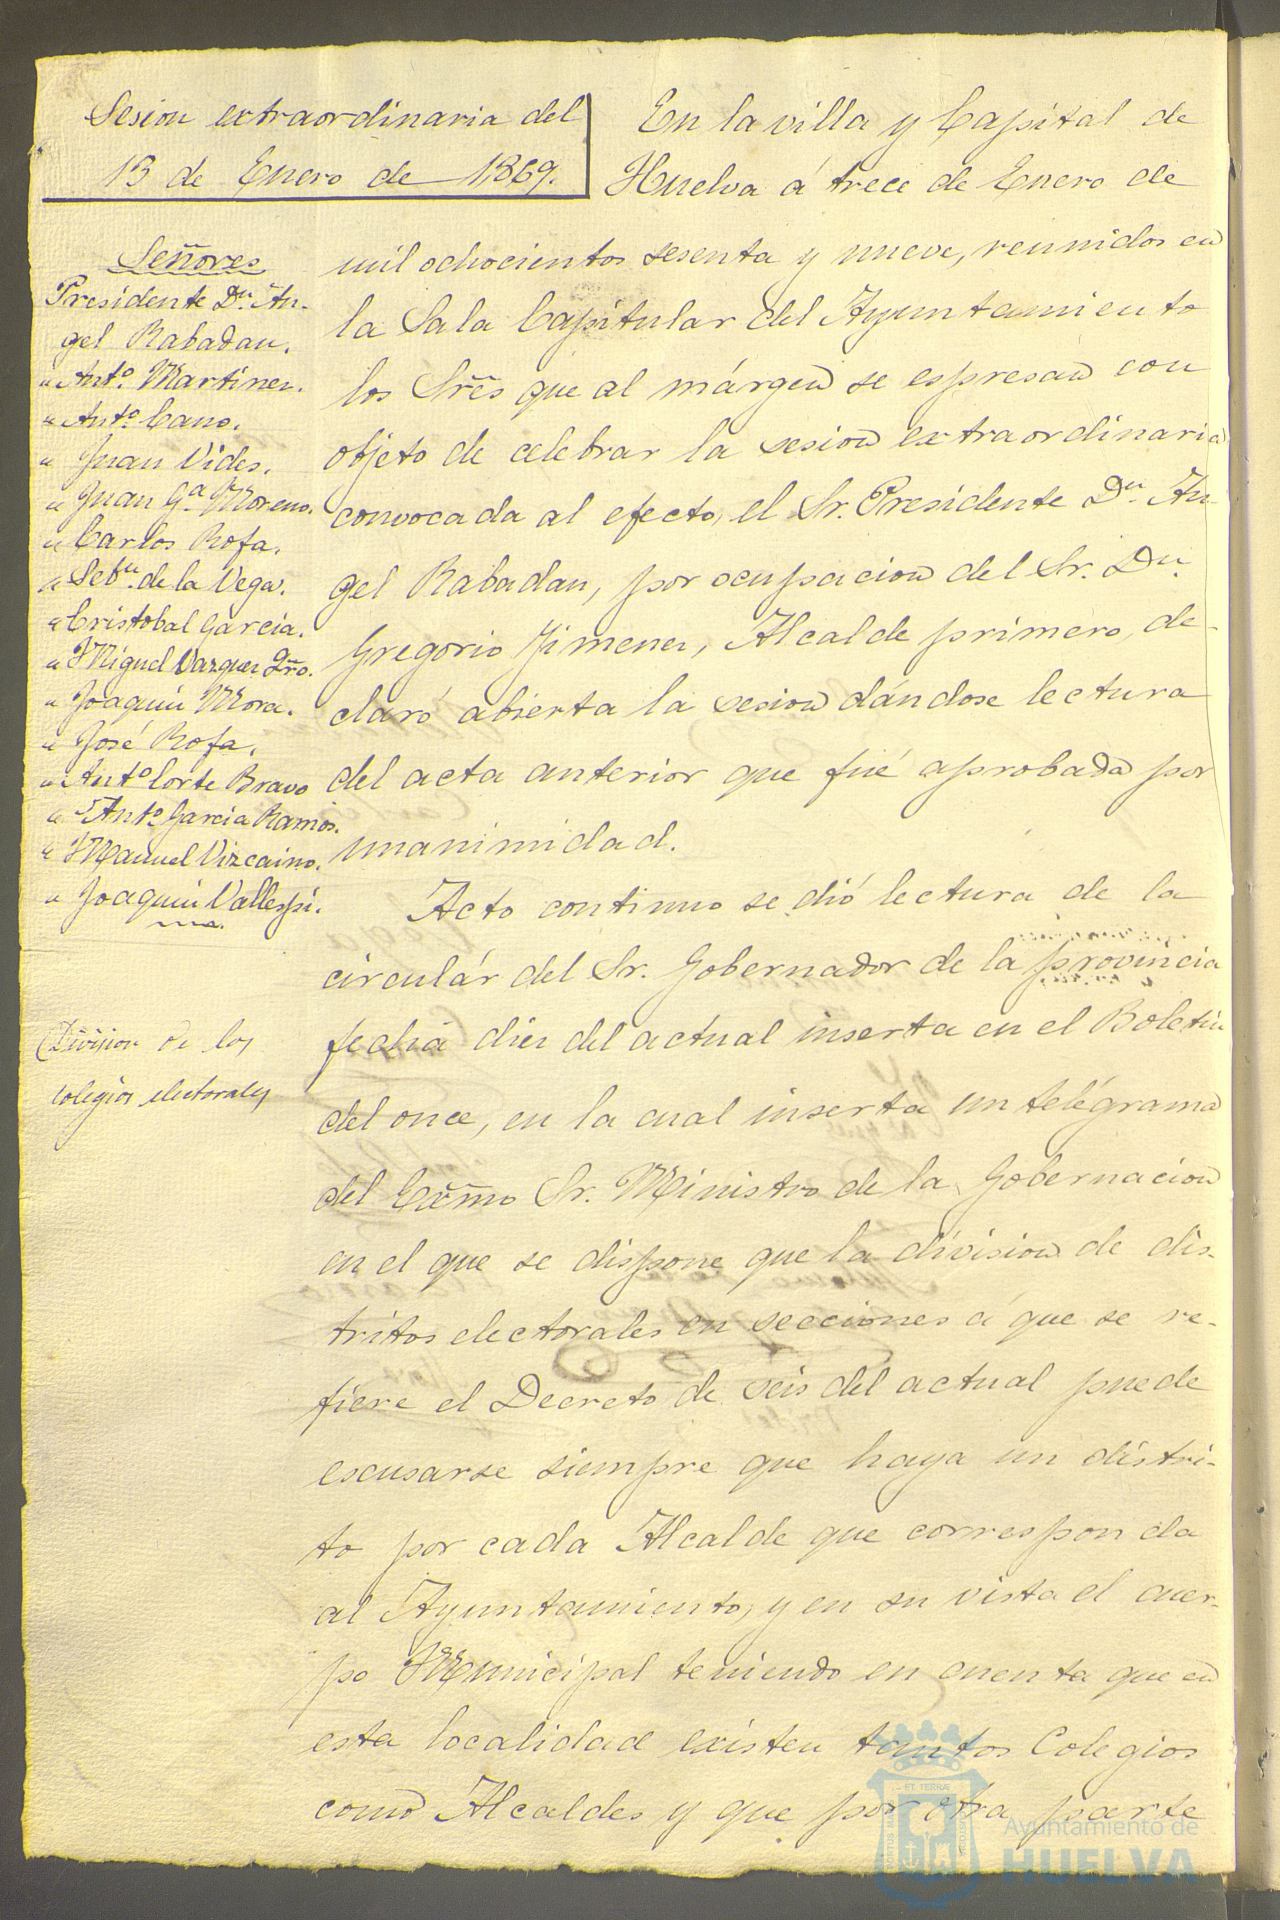 Sesion extraordinaria del
13 de Enero de 1869.
Señores
Presidente Dn. An-
gel Rabadan.
" Anto. Martinez.
" Anto. Cano.
" Juan Vides.
" Juan Ga. Moreno.
" Carlos Rofa.
" Sebn. de la Vega.
" Cristobal Garcia.
" Miguel Vazquez
" Joaquin Mora.
" José Rofa.
" Anto. Corte Bravo
" Anto. Garcia Ramos.
" Manuel Vizcaino.
" Joaquin Vallespi.
Division de los
colegios electorales
En la villa y Capital de
Huelva á trece de Enero de
mil ochocientos sesenta y nueve, reunidos en
la Sala Capitular del Ayuntamiento
los Sres que al márgen se espresan con
objeto de celebrar la sesion extraordinaria
convocada al efecto, el Sr. Presidente Dn. An-
gel Rabadan, por ocupacion del Sr. Dn.
Gregorio Jimenez, Alcalde primero, de-
claró abierta la sesion dándose lectura
del acta anterior que fué aprobada por
unanimidad.
Acto continuo se dió lectura de la
circulár del Sr. Gobernador de la provincia
fecha diez del actual inserta en el Boletin
del once, en la cual inserta un telégrama
del Exmo Sr. Ministro de la Gobernacion
en el que se dispone que la division de dis-
tritos electorales en secciones á que se re-
fiere el Decreto de seis del actual puede
escusarse siempre que haya un distri-
to por cada Alcalde que corresponda
al Ayuntamiento, y en su vista el cuer-
po Municipal teniendo en cuenta que en
esta localidad existen tantos Colegios
como Alcaldes y que por otra parte
Ayuntamiento de
HUELVA